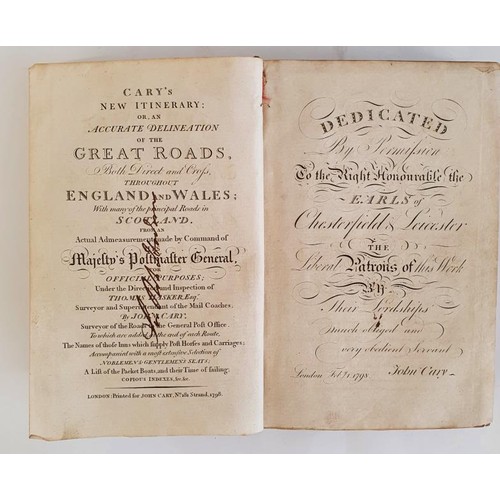 CARY'S
NEW ITINERARY:
OR, AN
ACCURATE DELINEATION
OF THE
GREAT ROADS,
Both Direct and Cross,
THROUGHOUT
ENGLAND AND WALES;
With many of the principal Roads in
SCOTLAND.
FROM AN
Actual Admeasurement made by Command of
Majesty's Postmaster General,
FOR
OFFICIAL PURPOSES;
Under the Direction and Inspection of
THOMAS HASKER, Esqr.
Surveyor and Superintendent of the Mail Coaches.
By JOHN CARY,
Surveyor of the Roads to the General Post Office.
To which are added at the end of each Route,
The Names of those Inns which supply Post Horses and Carriages;
Accompanied with a most extensive Selection of
NOBLEMEN & GENTLEMEN'S SEATS;
A List of the Packet Boats, and their Time of sailing;
COPIOUS INDEXES, &c. &c.
LONDON: Printed for JOHN CARY, No. 181 Strand, 1798.
DEDICATED
By Permission
To the Right Honourable the
EARLS of
Chesterfield & Leicester
THE
Liberal Patrons of this Work
By
Their Lordships
much obliged and
very obedient Servant
London Feb. 1 1798 John Cary